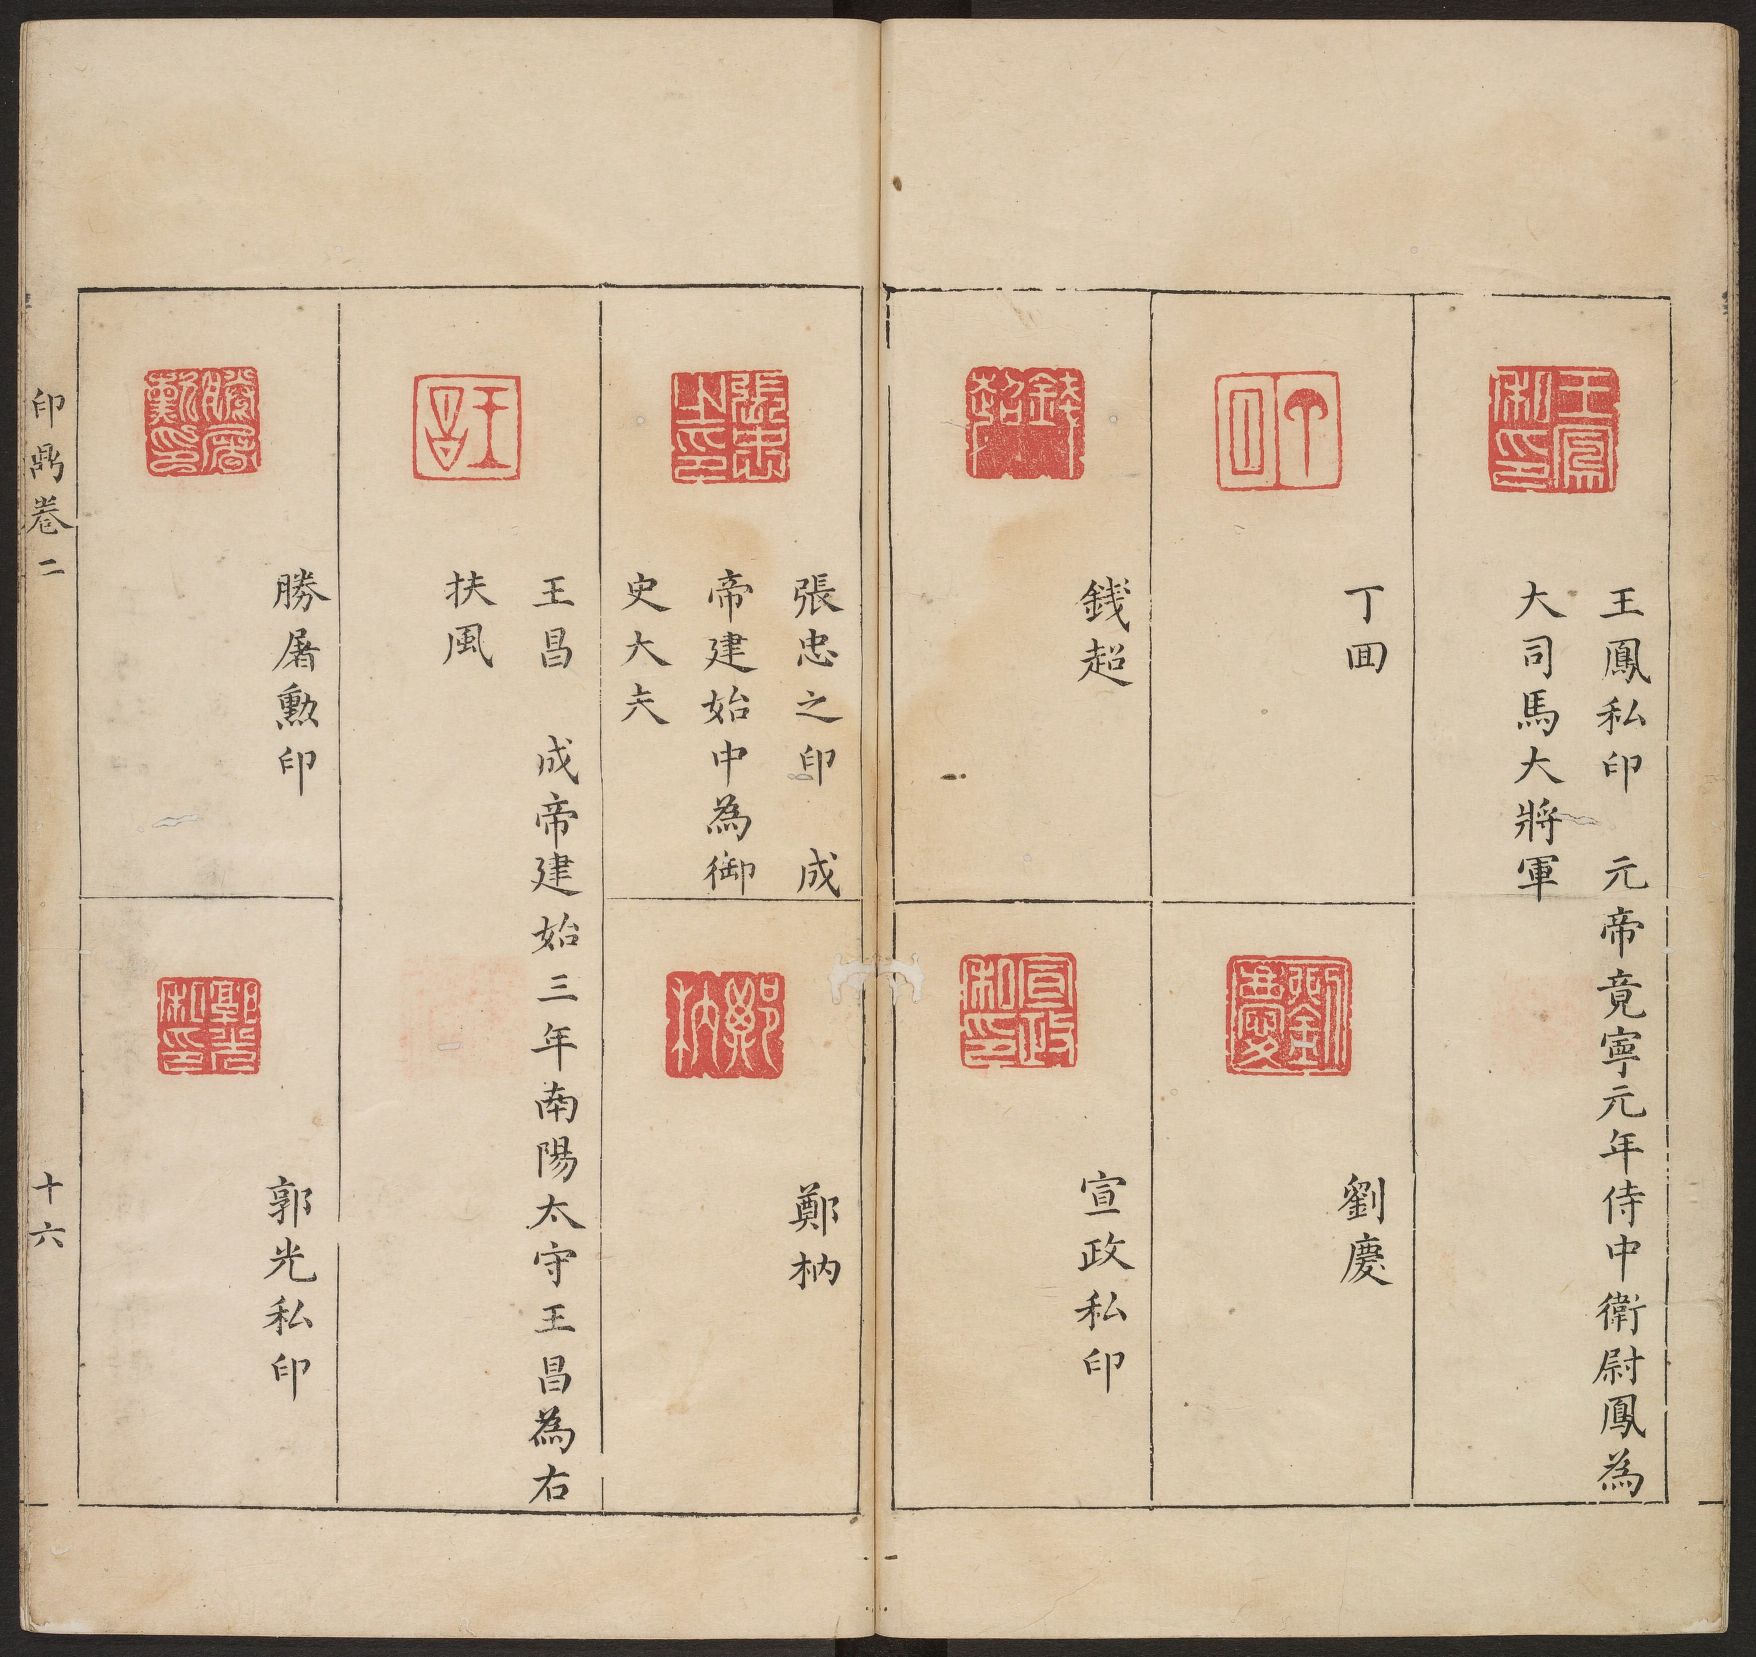 王鳳私印　元帝竟寧元年侍中衛尉鳳為
大司馬大將軍
丁回
劉慶
錢超
宣政私印
張忠之印　成
帝建始中為御
史大夫
鄭枘
王昌　成帝建始三年南陽太守王昌為右
扶風
勝屠勲印
郭光私印
印鼎卷二
十六